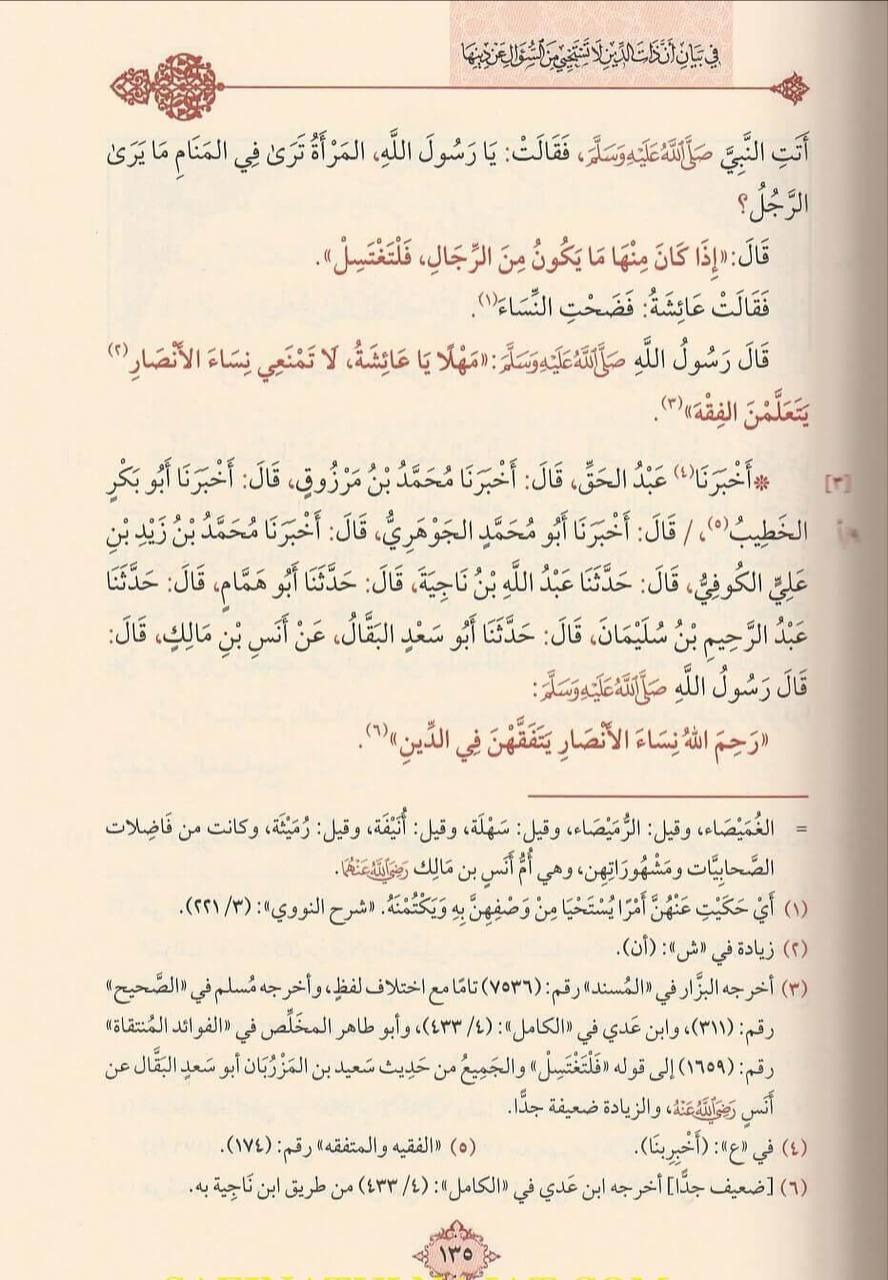 في بيان أن ذات الدين لا تستحيي من السؤال عن دينها
أَتَتِ النَّبِيَّ صَلَّى اللَّهُ عَلَيْهِ وَسَلَّمَ، فَقَالَتْ: يَا رَسُولَ اللَّهِ، المَرْأَةُ تَرَىٰ فِي المَنَامِ مَا يَرَىٰ
الرَّجُلُ؟
قَالَ: «إِذَا كَانَ مِنْهَا مَا يَكُونُ مِنَ الرِّجَالِ، فَلْتَغْتَسِلْ».
فَقَالَتْ عَائِشَةُ: فَضَحْتِ النِّسَاءَ(١).
قَالَ رَسُولُ اللَّهِ صَلَّى اللَّهُ عَلَيْهِ وَسَلَّمَ: «مَهْلًا يَا عَائِشَةُ، لَا تَمْنَعِي نِسَاءَ الأَنْصَارِ(٢)
يَتَعَلَّمْنَ الفِقْهَ»(٣).
[٣] * أَخْبَرَنَا(٤) عَبْدُ الحَقِّ، قَالَ: أَخْبَرَنَا مُحَمَّدُ بْنُ مَرْزُوقٍ، قَالَ: أَخْبَرَنَا أَبُو بَكْرٍ
الخَطِيبُ(٥)، / قَالَ: أَخْبَرَنَا أَبُو مُحَمَّدٍ الجَوْهَرِيُّ، قَالَ: أَخْبَرَنَا مُحَمَّدُ بْنُ زَيْدِ بْنِ
عَلِيٍّ الكُوفِيُّ، قَالَ: حَدَّثَنَا عَبْدُ اللَّهِ بْنُ نَاجِيَةَ، قَالَ: حَدَّثَنَا أَبُو هَمَّامٍ، قَالَ: حَدَّثَنَا
عَبْدُ الرَّحِيمِ بْنُ سُلَيْمَانَ، قَالَ: حَدَّثَنَا أَبُو سَعْدٍ البَقَّالُ، عَنْ أَنَسِ بْنِ مَالِكٍ، قَالَ:
قَالَ رَسُولُ اللَّهِ صَلَّى اللَّهُ عَلَيْهِ وَسَلَّمَ:
«رَحِمَ اللهُ نِسَاءَ الأَنْصَارِ يَتَفَقَّهْنَ فِي الدِّينِ»(٦).
= الغُمَيْصَاء، وقيل: الرُّمَيْصَاء، وقيل: سَهْلَة، وقيل: أُنَيْفَة، وقيل: رُمَيْثَة، وكانت من فَاضِلات
الصَّحابيَّات ومَشْهُورَاتِهن، وهي أُمُّ أَنَسِ بن مَالِك رَضِيَ اللَّهُ عَنْهُمَا.
(١) أَيْ حَكَيْتِ عَنْهُنَّ أَمْرًا يُسْتَحْيَا مِنْ وَصْفِهِنَّ بِهِ وَيَكْتُمْنَهُ. «شرح النووي»: (٣/ ٢٢١).
(٢) زيادة في «ش»: (أن).
(٣) أخرجه البزَّار في «المُسند» رقم: (٧٥٣٦) تامًا مع اختلاف لفظٍ، وأخرجه مُسلم في «الصَّحيح»
رقم: (٣١١)، وابن عَدي في «الكامل»: (٤/ ٤٣٣)، وأبو طاهر المخلِّص في «الفوائد المُنتقاة»
رقم: (١٦٥٩) إلى قوله «فَلْتَغْتَسِلْ» والجَمِيعُ من حَدِيث سَعيد بن المَرْزُبَان أبو سَعدٍ البَقَّال عن
أَنَسٍ رَضِيَ اللَّهُ عَنْهُ، والزيادة ضعيفة جدًّا.
(٤) في «ع»: (أَخْبِرِينَا). (٥) «الفقيه والمتفقه» رقم: (١٧٤).
(٦) [ضعيف جدًّا] أخرجه ابن عَدي في «الكامل»: (٤/ ٤٣٣) من طريق ابن نَاجِية به.
١٣٥